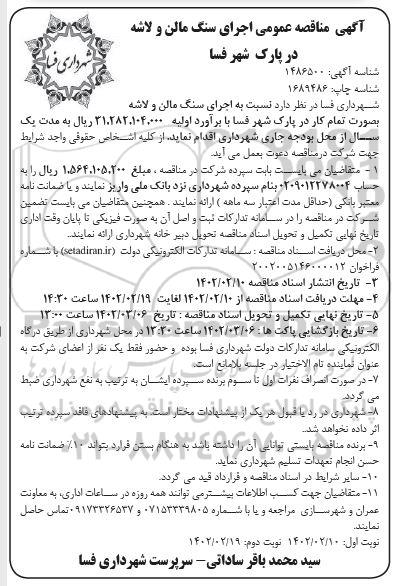 آگهی مناقصه عمومی اجرای سنگ مالن و لاشه
در پارک شهر فسا
شهرداری فسا
شناسه آگهی: ۱۴۸۶۵۰۰
شناسه چاپ: ۱۶۸۹۴۸۶
شهرداری فسا در نظر دارد نسبت به اجرای سنگ مالن و لاشه
بصورت تمام کار در پارک شهر فسا با برآورد اولیه ۳۱,۲۸۲,۱۰۴,۰۰۰ ریال به مدت یک
سال از محل بودجه جاری شهرداری اقدام نماید. از کلیه اشخاص حقوقی واجد شرایط
جهت شرکت درمناقصه دعوت بعمل می آید.
۱- متقاضیان می بایست بابت سپرده شرکت در مناقصه ، مبلغ ۱,۵۶۴,۱۰۵,۲۰۰ ریال را به
حساب ۰۲۰۹۰۱۲۲۷۸۰۰۴ بنام سپرده شهرداری نزد بانک ملی واریز نمایند و یا ضمانت نامه
معتبر بانکی (حداقل مدت اعتبار سه ماهه ) ارائه نمایند . همچنین متقاضیان می بایست تضمین
شرکت در مناقصه را در سامانه تدارکات ثبت و اصل آن به صورت فیزیکی تا پایان وقت اداری
تاریخ نهایی تکمیل و تحویل اسناد مناقصه تحویل دبیر خانه شهرداری ارائه نمایند..
۲- محل دریافت اسناد مناقصه : سامانه تدارکات الکترونیکی دولت (setadiran.ir) با شماره
فراخوان ۲۰۰۲۰۰۵۱۴۶۰۰۰۰۱۲
۳- تاریخ انتشار اسناد مناقصه ۱۴۰۲/۰۲/۱۰
۴- مهلت دریافت اسناد مناقصه از ۱۴۰۲/۰۲/۱۰ لغایت ۱۴۰۲/۰۲/۱۹ ساعت ۱۴:۳۰
۵- تاریخ نهایی تکمیل و تحویل اسناد مناقصه : تاریخ ۱۴۰۲/۰۳/۰۶ ساعت ۱۳:۰۰
۶- تاریخ بازگشایی پاکت ها : ۱۴۰۲/۰۳/۰۶ ساعت ۱۳:۳۰ در محل شهرداری از طریق درگاه
الکترونیکی سامانه تدارکات دولت شهرداری فسا بوده و حضور فقط یک نفر از اعضای شرکت به
عنوان نماینده تام الاختیار در جلسه بلامانع است.
۷- در صورت انصراف نفرات اول تا سوم برنده سپرده ایشان به ترتیب به نفع شهرداری ضبط
می گردد.
۸- شهرداری در رد یا قبول هر یک از پیشنهادات مختار است. به پیشنهادهای فاقد سپرده ترتیب
اثر داده نخواهد شد..
۹- برنده مناقصه بایستی توانایی آن را داشته باشد به هنگام بستن قرارد بتواند ۱۰٪ ضمانت نامه
حسن انجام تعهدات تسلیم شهرداری نماید.
۱۰- سایر شرایط در اسناد مناقصه و قرارداد قید می گردد.
۱۱- متقاضیان جهت کسب اطلاعات بیشتر می توانند همه روزه در ساعات اداری، به معاونت
عمران و شهرسازی مراجعه و یا با شماره ۰۷۱۵۳۳۳۹۸۰۵ و ۰۹۱۷۳۳۲۶۵۳۷ تماس حاصل
نمایند.
نوبت اول: ۱۴۰۲/۰۲/۱۰ نوبت دوم: ۱۴۰۲/۰۲/۱۹
سید محمد باقر ساداتی– سرپرست شهرداری فسا